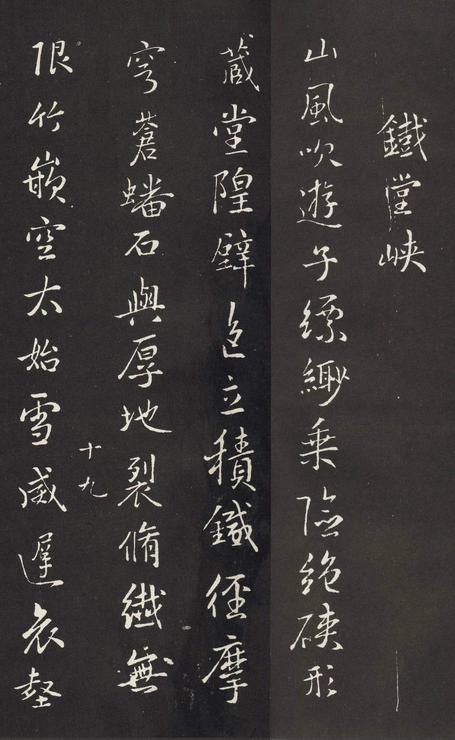 鐵堂峽
山風吹遊子縹緲乘險絕硤形
藏堂隍壁色立積鐵徑摩
穹蒼蟠石與厚地裂脩纖無
垠竹嵌空太始雪威遲哀壑
十九